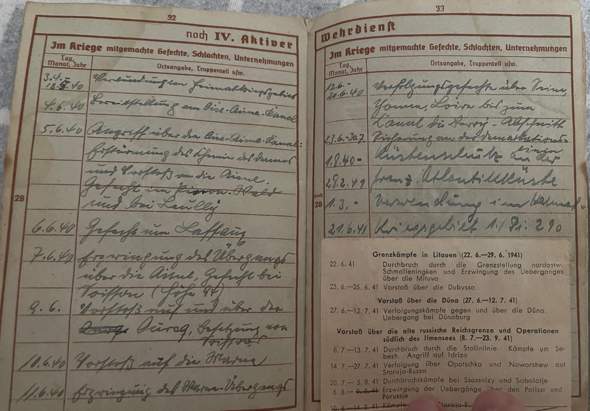 32
noch IV. Aktiver
Im Kriege mitgemachte Gefechte, Schlachten, Unternehmungen
Tag, Monat, Jahr
Ortsangabe, Truppenteil usw.
Verwendung im Heimatkriegsgebiet
4.6.40 Bereitstellung am Oise-Aisne-Kanal
5.6.40 Angriff über den Oise-Aisne-Kanal.
Erstürmung des Chemin des Dames
und Vorstoß an die Aisne.
Gefecht im
und bei
28
6.6.40 Gefecht um Laffaux
7.6.40 Erzwingung des Übergangs
über die Aisne, Gefecht bei
Soissons (Höhe
9.6. Vorstoß auf und über die
Ourcq, Besetzung von
10.6.40 Vorstoß auf die Marne
11.6.40 Erzwingung des Marne-Übergangs
33
Wehrdienst
Im Kriege mitgemachte Gefechte, Schlachten, Unternehmungen
Tag, Monat, Jahr
Ortsangabe, Truppenteil usw.
12.6.-
Verfolgungsgefechte über Seine,
Yonne, Loire bis zum
Kanal du Berry-Abschnitt
Sicherung an der Demarkations-
linie
1.8.40- Küstenschutz an der
28.2.41 franz. Atlantikküste
28
1.3.- Verwendung im Heimat-
21.6.41 Kriegsgebiet
Grenzkämpfe in Litauen (22. 6.—29. 6. 1941)
22. 6. 41 Durchbruch durch die Grenzstellung nordostw.
Schmalleningken und Erzwingung des Ueberganges
über die Mituva
23. 6.—25. 6. 41 Vorstoß über die Dubyssa
Vorstoß über die Düna (27. 6.—12. 7. 41)
Verfolgungskämpfe gegen und über die Düna.
Uebergang bei Dünaburg
Vorstoß über die alte russische Reichsgrenze und Operationen
südlich des Ilmensees (8. 7.—23. 9. 41)
7.—13. 7. 41 Durchbruch durch die Stalinlinie. Kämpfe um Se-
besh. Angriff auf Idriza
14. 7.—27. 7. 41 Verfolgung über Opotschka und Noworshew auf
Staraja-Russa
Durchbruchskämpfe bei
Erzwingung der Uebergänge über den Polist und
Kämpfe